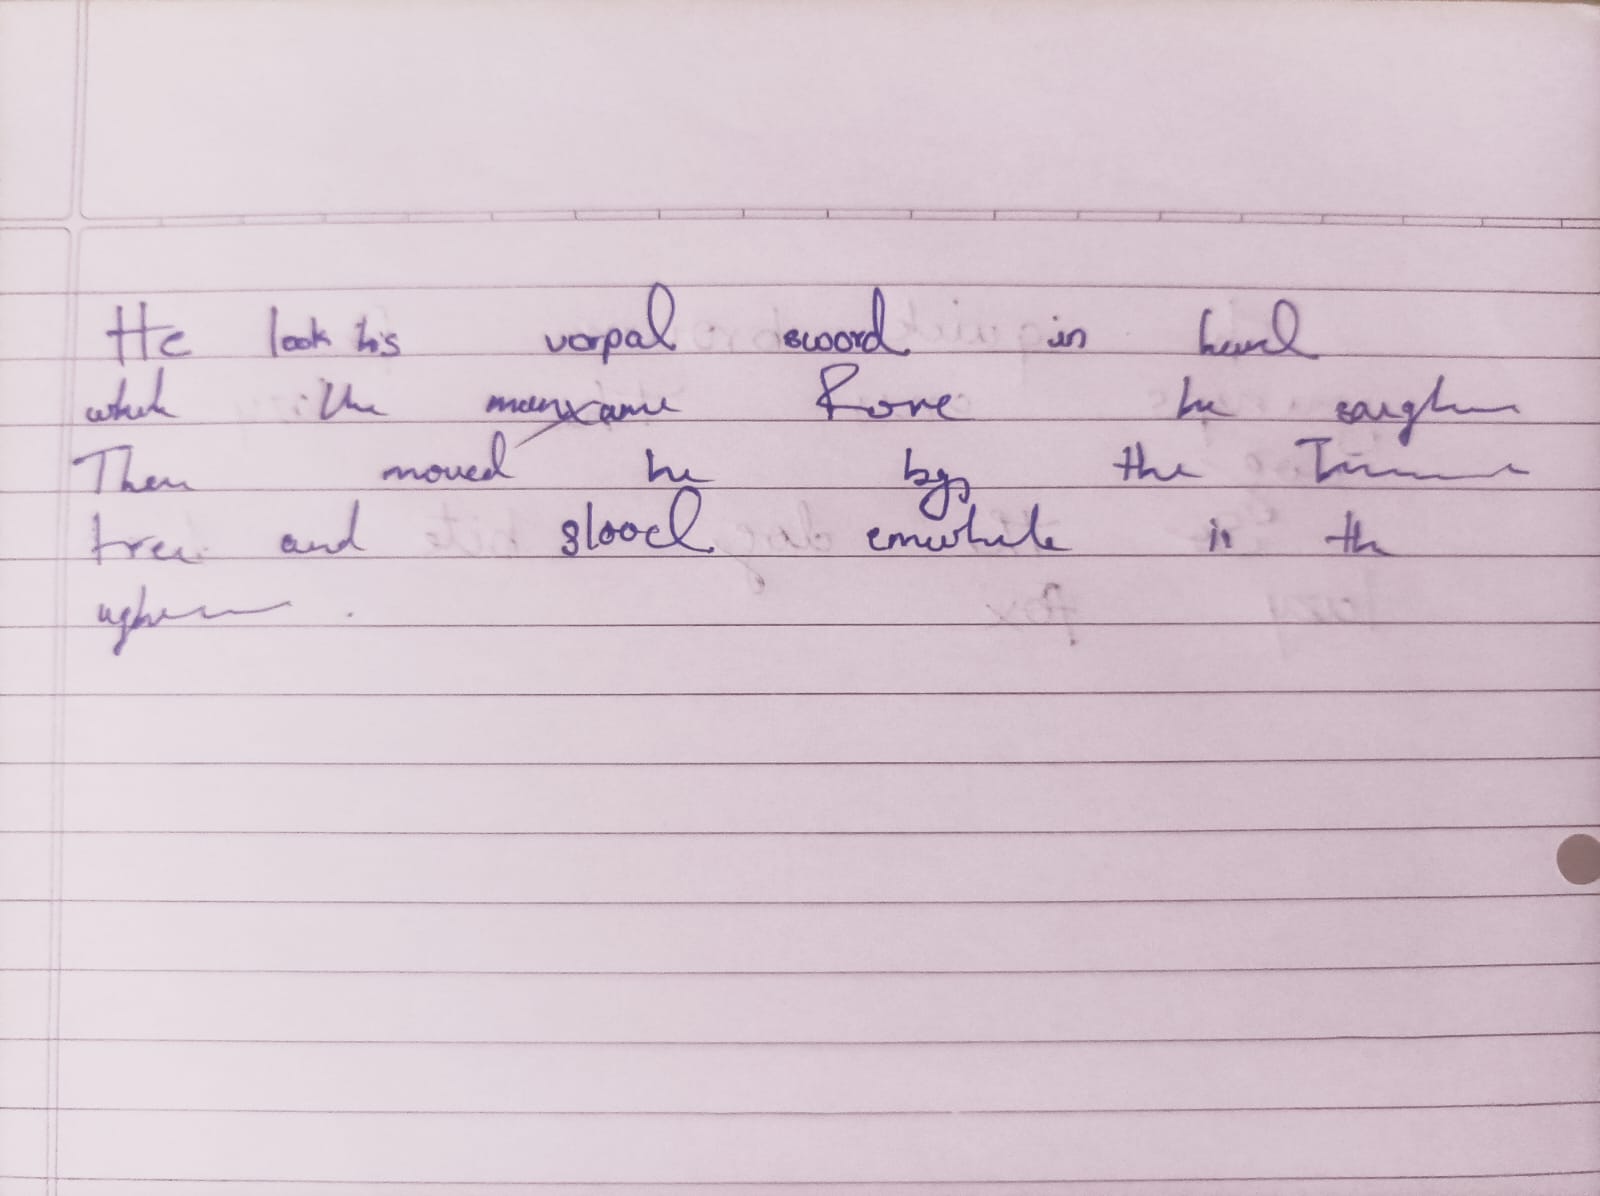 He look his vorpal sword in hand
while the manxame Rone he saugh
Then moved he by the
tree and stood emwhile in the